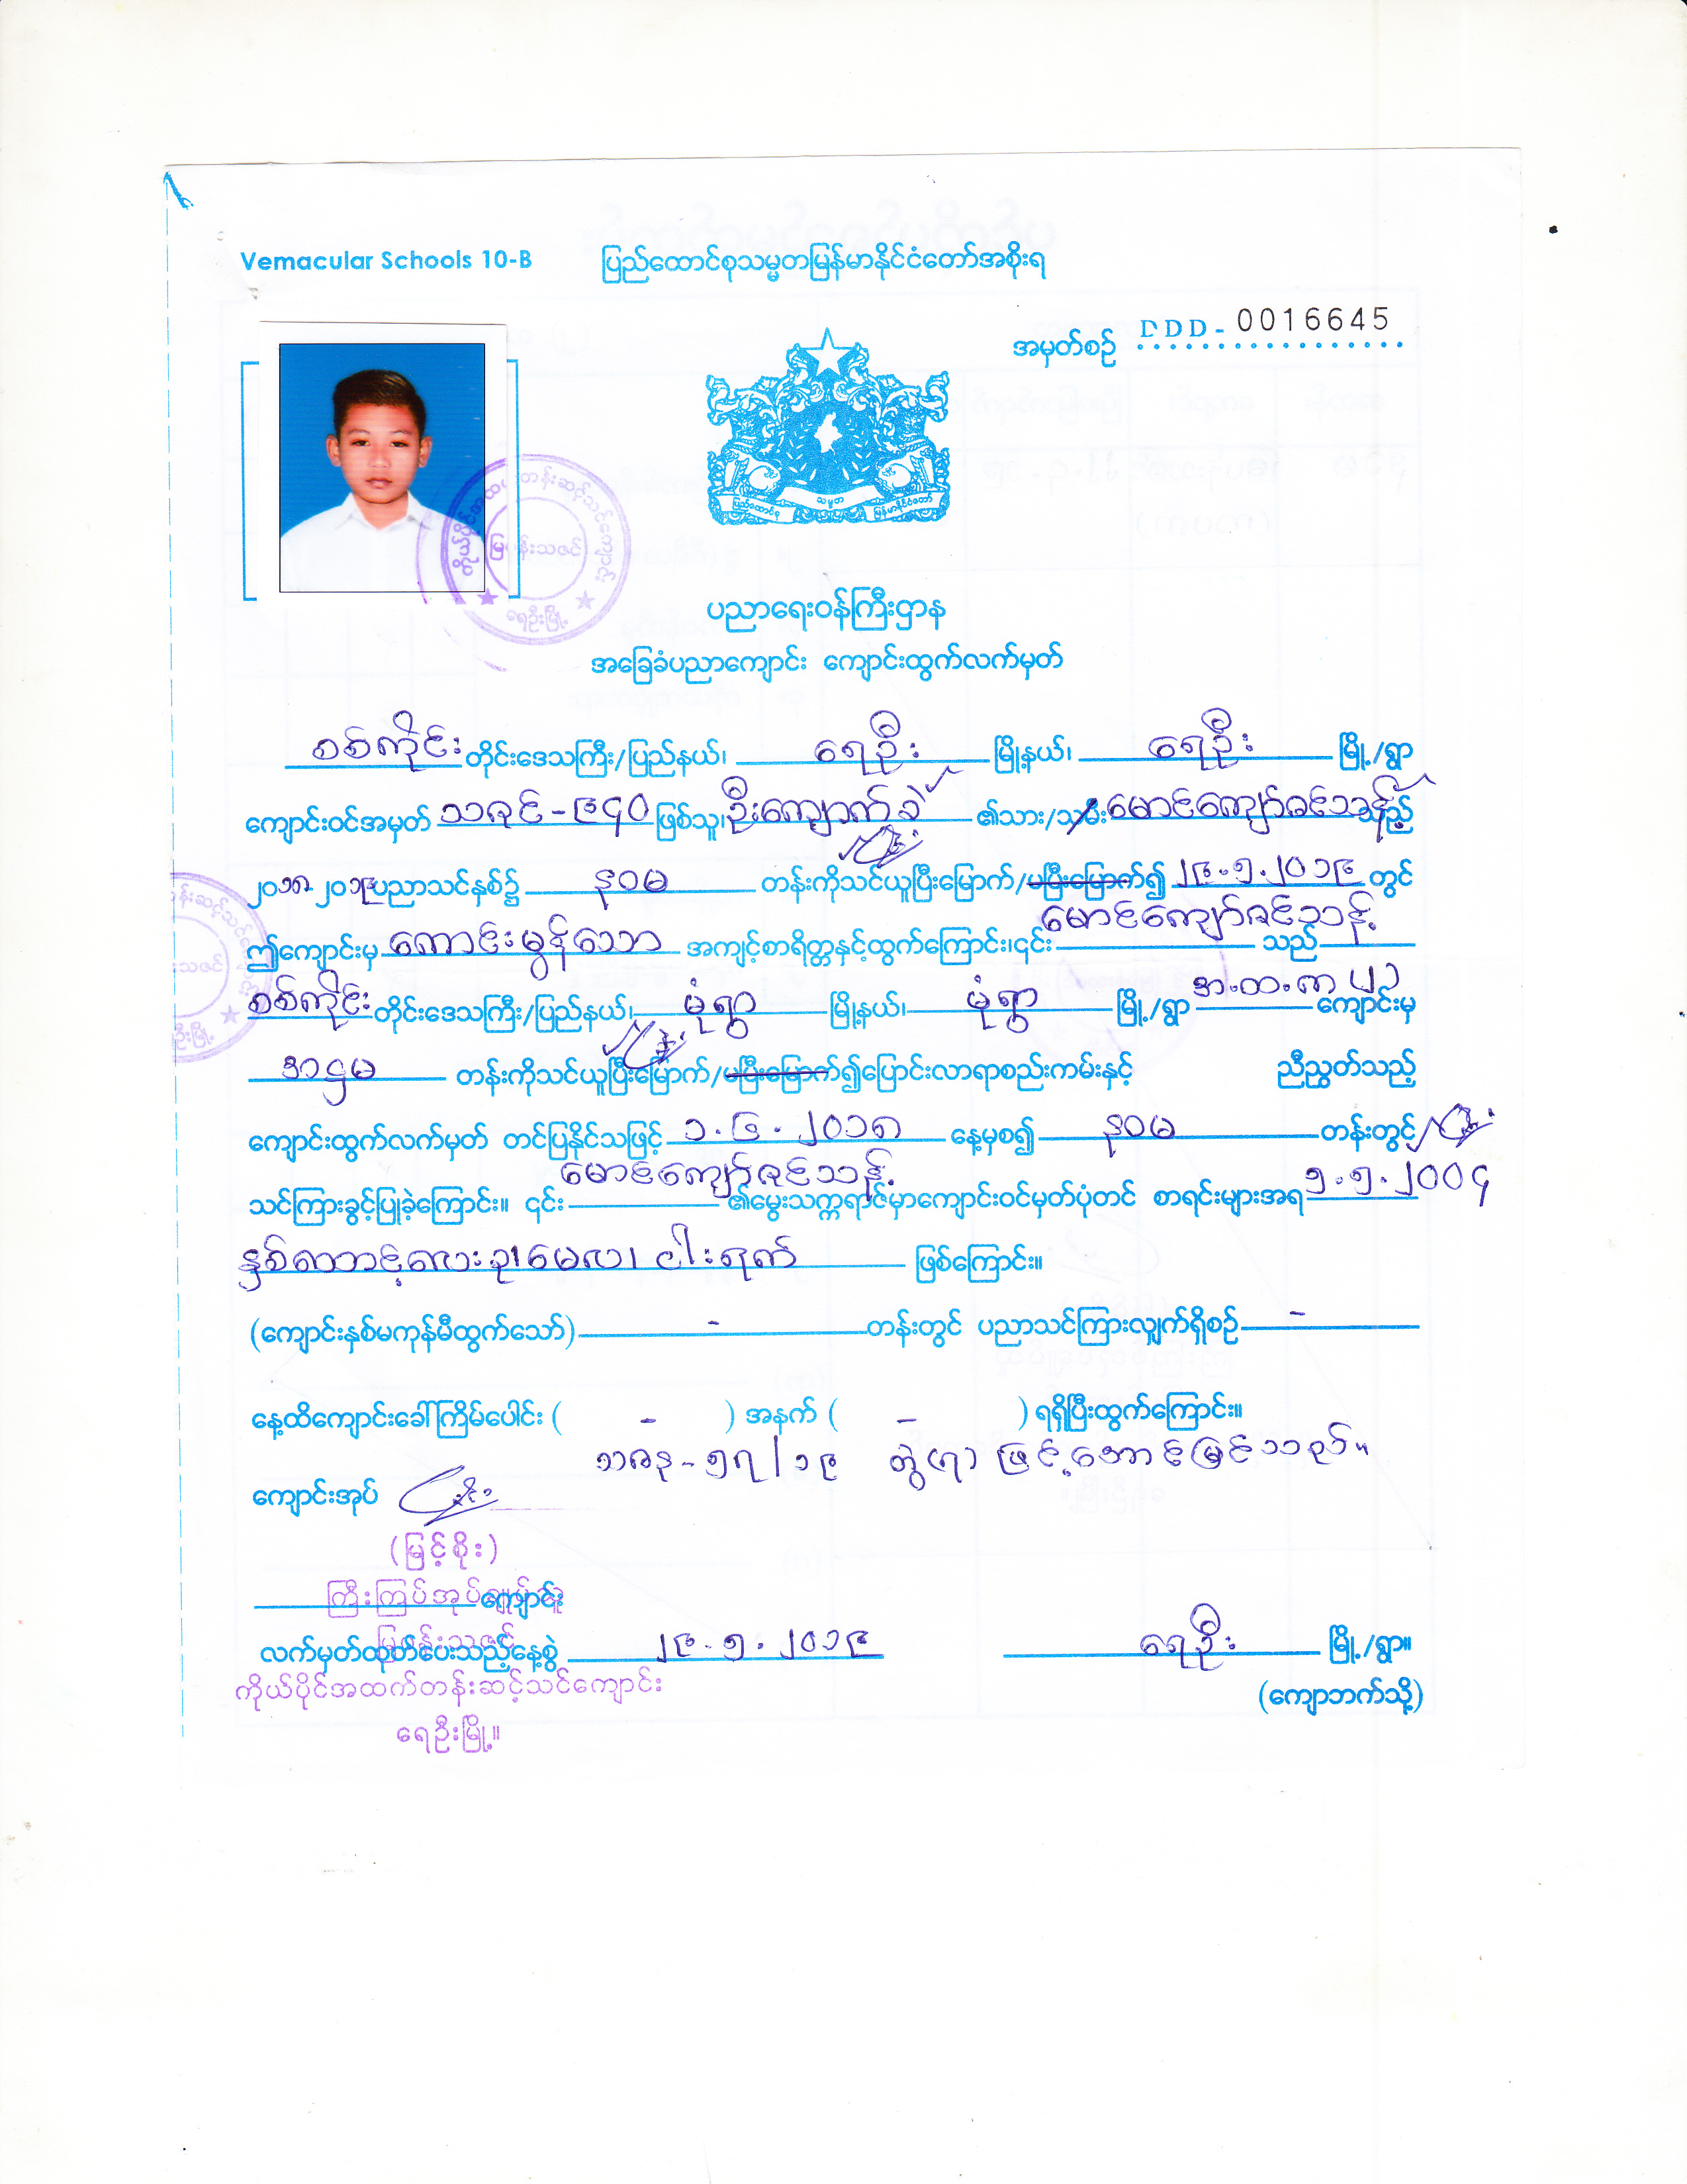 Vemacular Schools 10-B ပြည်ထောင်စုသမ္မတမြန်မာနိုင်ငံတော်အစိုးရ
အမှတ်စဉ် DDD-0016645
ပြည်ထောင်စု သမ္မတ မြန်မာနိုင်ငံတော်
ပညာရေးဝန်ကြီးဌာန
အခြေခံပညာကျောင်း ကျောင်းထွက်လက်မှတ်
စစ်ကိုင်း တိုင်းဒေသကြီး/ပြည်နယ်၊ ရေဦး မြို့နယ်၊ ရေဦး မြို့/ရွာ
ကျောင်းဝင်အမှတ် သခင်-၉၄၀ ဖြစ်သူ၊ ဦးကျောက်ခဲ ၏သား/သမီး မောင်ကျော်ဇင်သန့် သည်
၂၀၁၈-၂၀၁၉ ပညာသင်နှစ်၌ နဝမ တန်းကိုသင်ယူပြီးမြောက်/မပြီးမြောက်၍ ၂၉.၅.၂၀၁၉ တွင်
ဤကျောင်းမှ ကောင်းမွန်သော အကျင့်စာရိတ္တနှင့်ထွက်ကြောင်း၊၎င်း မောင်ကျော်ဇင်သန့် သည်
စစ်ကိုင်း တိုင်းဒေသကြီး/ပြည်နယ်၊ မုံရွာ မြို့နယ်၊ မုံရွာ မြို့/ရွာ အ.ထ.က ၂၂ ကျောင်းမှ
အဋ္ဌမ တန်းကိုသင်ယူပြီးမြောက်/မပြီးမြောက်၍ပြောင်းလာရာစည်းကမ်းနှင့် ညီညွတ်သည့်
ကျောင်းထွက်လက်မှတ် တင်ပြနိုင်သဖြင့် ၁.၆.၂၀၁၈ နေ့မှစ၍ နဝမ တန်းတွင်
သင်ကြားခွင့်ပြုခဲ့ကြောင်း။ ၎င်း မောင်ကျော်ဇင်သန့် ၏မွေးသက္ကရာဇ်မှာကျောင်းဝင်မှတ်ပုံတင် စာရင်းများအရ ၅.၅.၂၀၀၄
နှစ်ထောင့်လေးခု၊မေလ၊ ငါးရက် ဖြစ်ကြောင်း။
(ကျောင်းနှစ်မကုန်မီထွက်သော်) - တန်းတွင် ပညာသင်ကြားလျှက်ရှိစဉ် -
နေ့ထိကျောင်းခေါ်ကြိမ်ပေါင်း ( - ) အနက် ( - ) ရရှိပြီးထွက်ကြောင်း။
သဇန-၅၇/၁၉ တွဲ(ရ) ဖြင့်အောင်မြင်သည်။
ကျောင်းအုပ်
(မြင့်စိုး)
ကြီးကြပ်အုပ်ချုပ်သူ ကျောင်း
မြပန်းသဇင်
လက်မှတ်ထုတ်ပေးသည့်နေ့စွဲ ၂၉.၅.၂၀၁၉ ရေဦး မြို့/ရွာ။
ကိုယ်ပိုင်အထက်တန်းဆင့်သင်ကျောင်း
(ကျောဘက်သို့)
ရေဦးမြို့။